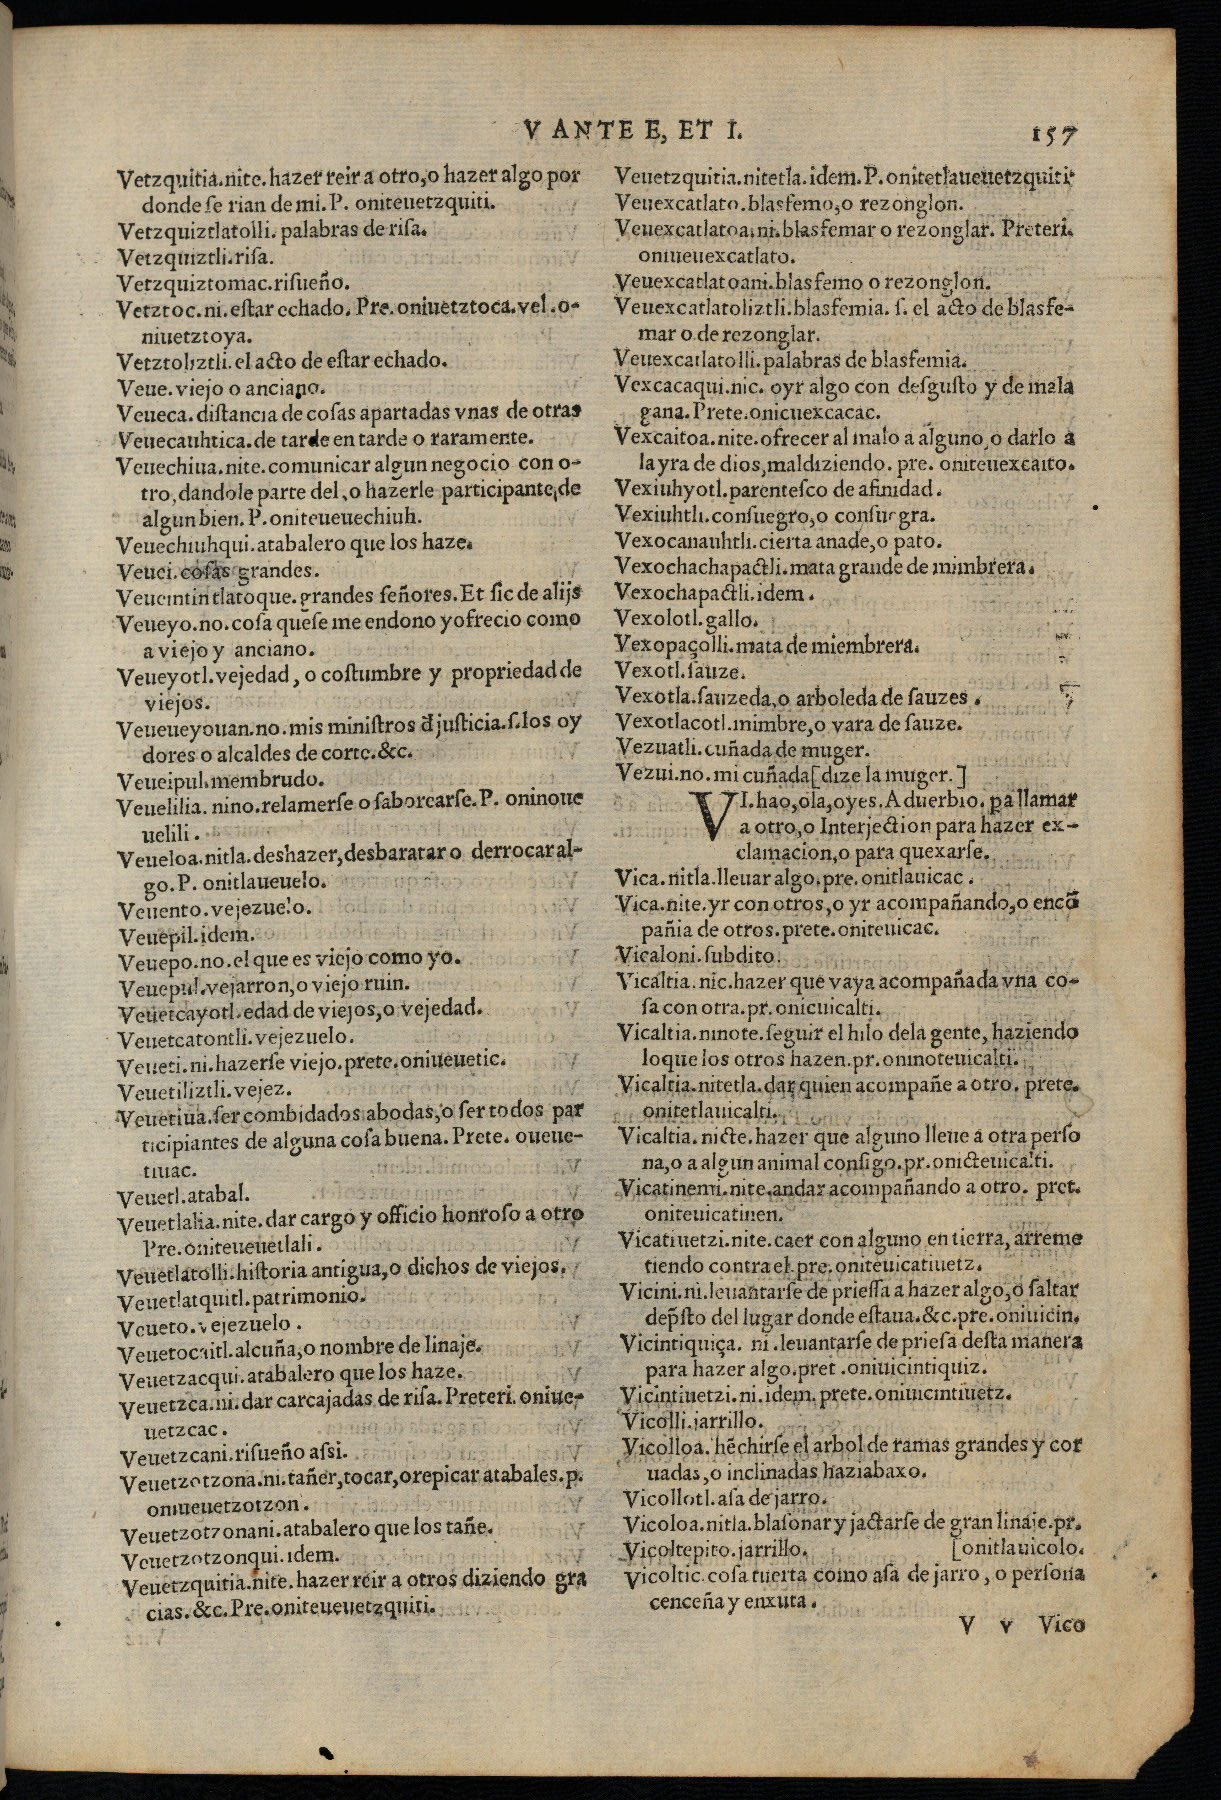 V ANTE E, ET I. 157
Vetzquitia.nite.hazer reir a otro,o hazer algo por
donde se rian de mi. P. oniteuetzquiti.
Vetzquiztlatolli. palabras de risa.
Vetzquiztli.risa.
Vetzquiztomac.risueño.
Vetztoc.ni.estar echado. Pre.oniuetztoca.vel.o-
niuetztoya.
Vetztoliztli.el acto de estar echado.
Veue.viejo o anciano.
Veueca.distancia de cosas apartadas vnas de otras
Veuecauhtica.de tarde en tarde o raramente.
Veuechiua.nite.comunicar algun negocio con o-
tro,dandole parte del,o hazerle participante,de
algun bien. P.oniteueuechiuh.
Veuechiuhqui.atabalero que los haze.
Veuei.cosas grandes.
Veueintin tlatoque.grandes señores.Et sic de alijs
Veueyo.no.cosa que se me endono y ofrecio como
a viejo y anciano.
Veueyotl.vejedad, o costumbre y propriedad de
viejos.
Veueueyouan.no.mis ministros đ justicia.s.los oy
dores o alcaldes de corte.&c.
Veueipul.membrudo.
Veuelilia. nino.relamerse o saborearse.P. oninoue
uelili.
Veueloa.nitla.deshazer,desbaratar o derrocar al-
go.P. onitlaueuelo.
Veuento.vejezuelo.
Veuepil.idem.
Veuepo.no.el que es viejo como yo.
Veuepul.vejarron,o viejo ruin.
Veuetcayotl.edad de viejos,o vejedad.
Veuetcatontli.vejezuelo.
Veueti.ni.hazerse viejo.prete.oniueuetic.
Veuetiliztli.vejez.
Veuetiua.ser combidados abodas,o ser todos par
ticipiantes de alguna cosa buena. Prete. oueue-
tiuac.
Veuetl.atabal.
Veuetlalia.nite.dar cargo y officio honroso a otro
Pre.oniteueuetlali.
Veuetlatolli.historia antigua,o dichos de viejos.
Veuetlatquitl.patrimonio.
Veueto.vejezuelo.
Veuetocaitl.alcuña,o nombre de linaje.
Veuetzacqui.atabalero que los haze.
Veuetzca.ni.dar carcajadas de risa. Preteri.oniue-
uetzcac.
Veuetzcani.risueño assi.
Veuetzotzona.ni.tañer,tocar,o repicar atabales.p.
oniueuetzotzon.
Veuetzotzonani.atabalero que los tañe.
Veuetzotzonqui.idem.
Veuetzquitia.nite.hazer reir a otros diziendo gra
cias.&c.Pre.oniteueuetzquiti.
Veuetzquitia.nitetla.idem.P.onitetlaueuetzquiti
Veuexcatlato.blasfemo,o rezonglon.
Veuexcatlatoa.ni.blasfemar o rezonglar. Preteri.
oniueuexcatlato.
Veuexcatlatoani.blasfemo o rezonglon.
Veuexcatlatoliztli.blasfemia. s. el acto de blasfe-
mar o de rezonglar.
Veuexcatlatolli.palabras de blasfemia.
Vexcacaqui.nic. oyr algo con desgusto y de mala
gana.Prete.onicuexcacac.
Vexcaitoa.nite.ofrecer al malo a alguno,o darlo a
la yra de dios,maldiziendo. pre. oniteuexcaito.
Vexiuhyotl.parentesco de afinidad.
Vexiuhtli.consuegro,o consuegra.
Vexocanauhtli.cierta anade,o pato.
Vexochachapactli.mata grande de mimbrera.
Vexochapactli.idem.
Vexolotl.gallo.
Vexopaçolli.mata de miembrera.
Vexotl.sauze.
Vexotla.sauzeda,o arboleda de sauzes.
Vexotlacotl.mimbre,o vara de sauze.
Vezuatli.cuñada de muger.
Vezui.no.mi cuñada [dize la muger.]
VI.hao,ola,oyes.Aduerbio. pa llamar
a otro,o Interjection para hazer ex-
clamacion,o para quexarse.
Vica.nitla.lleuar algo.pre.onitlauicac.
Vica.nite.yr con otros,o yr acompañando,o encõ
pañia de otros.prete.oniteuicac.
Vicaloni.subdito.
Vicaltia.nic.hazer que vaya acompañada vna co-
sa con otra.pr.onicuicalti.
Vicaltia.ninote.seguir el hilo dela gente, haziendo
loque los otros hazen.pr.oninoteuicalti.
Vicaltia.nitetla.dar quien acompañe a otro. prete.
onitetlauicalti.
Vicaltia.nicte.hazer que alguno lleue a otra perso
na,o a algun animal consigo.pr.onicteuicalti.
Vicatinemi.nite.andar acompañando a otro. pret.
oniteuicatinen.
Vicatiuetzi.nite.caer con alguno en tierra, arreme
tiendo contra el.pre.oniteuicatiuetz.
Vicini.ni.leuantarse de priessa a hazer algo,o saltar
dep̃sto del lugar donde estaua.&c.pre.oniuicin.
Vicintiquiça. ni.leuantarse de priesa desta manera
para hazer algo.pret.oniuicintiquiz.
Vicintiuetzi.ni.idem.prete.oniuicintiuetz.
Vicolli.jarrillo.
Vicolloa.hẽchirse el arbol de ramas grandes y cor
uadas,o inclinadas haziabaxo.
Vicollotl.asa de jarro.
Vicoloa.nitla.blasonar y jactarse de gran linaje.pr.
Vicoltepito.jarrillo. [onitlauicolo.
Vicoltic.cosa tuerta como asa de jarro, o persona
cenceña y enxuta.
V v Vico